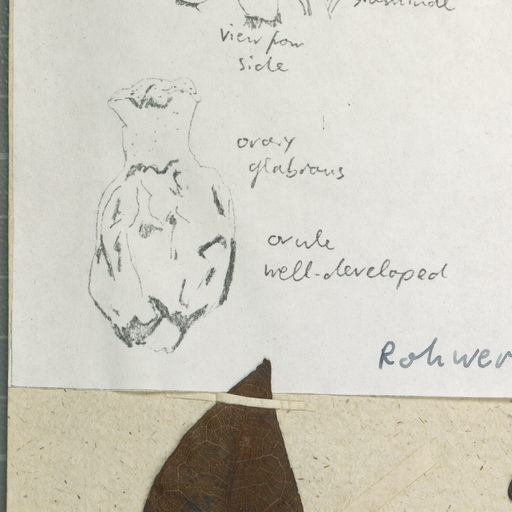 staminode
view from
side
ovary
glabrous
ovule
well-developed
Rohwer